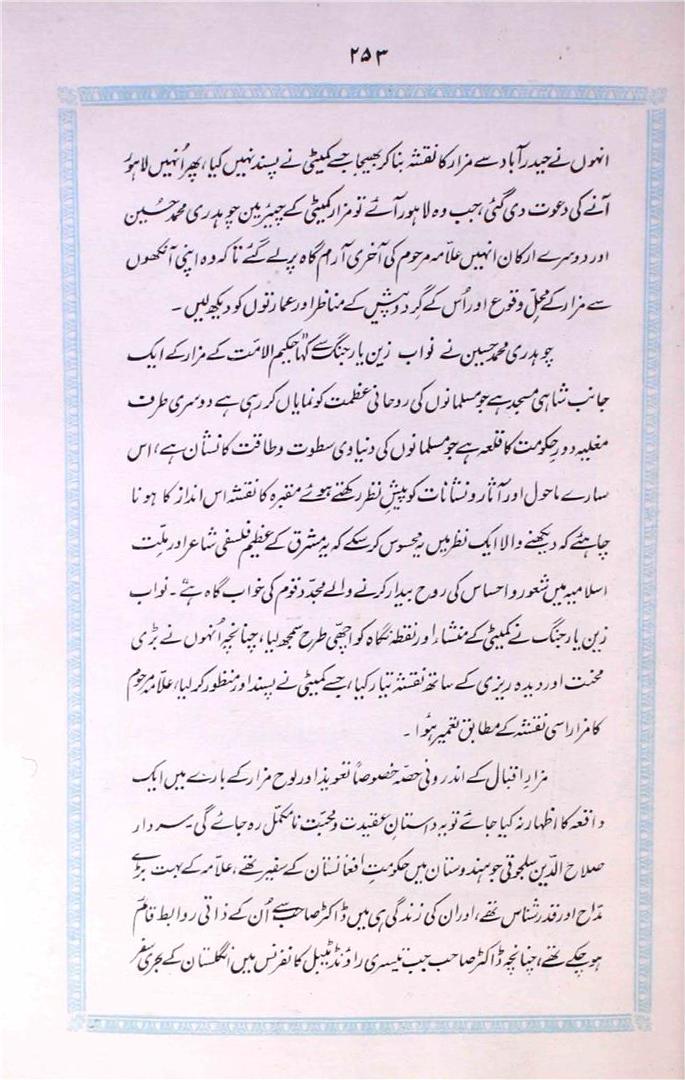 ۲۵۳
انہوں نے حیدر آباد سے مزار کا نقشہ بنا کر بھیجا جسے کمیٹی نے پسند نہیں کیا، پھر اُنہیں لاہور
آنے کی دعوت دی گئی، جب وہ لاہور آئے تو مزار کمیٹی کے چیئرمین چوہدری محمد حسین
اور دوسرے ارکان انہیں علّامہ مرحوم کی آخری آرام گاہ پر لے گئے تاکہ وہ اپنی آنکھوں
سے مزار کے محلِّ وقوع اور اُس کے گرد و پیش کے مناظر اور عمارتوں کو دیکھ لیں۔
چوہدری محمد حسین نے نواب زین یار جنگ سے کہا "حکیم الامّت کے مزار کے ایک
جانب شاہی مسجد ہے جو مسلمانوں کی روحانی عظمت کو نمایاں کر رہی ہے دوسری طرف
مغلیہ دورِ حکومت کا قلعہ ہے جو مسلمانوں کی دنیاوی سطوت و طاقت کا نشان ہے، اس
سارے ماحول اور آثار و نشانات کو پیشِ نظر رکھتے ہوئے مقبرہ کا نقشہ اس انداز کا ہونا
چاہئے کہ دیکھنے والا ایک نظر میں یہ محسوس کر سکے کہ یہ مشرق کے عظیم فلسفی شاعر اور ملّت
اسلامیہ میں شعور و احساس کی روح بیدار کرنے والے مجدّد قوم کی خواب گاہ ہے"۔ نواب
زین یار جنگ نے کمیٹی کے منشاء اور نقطہ نگاہ کو اچھی طرح سمجھ لیا، چنانچہ اُنہوں نے بڑی
محنت اور دیدہ ریزی کے ساتھ نقشہ تیار کیا، جسے کمیٹی نے پسند اور منظور کر لیا، علّامہ مرحوم
کا مزار اسی نقشہ کے مطابق تعمیر ہُوا۔
مزارِ اقبال کے اندرونی حصّہ خصوصاً تعویذ اور لوح مزار کے بارے میں ایک
واقعہ کا اظہار نہ کیا جائے تو یہ داستانِ عقیدت و محبّت نامکمّل رہ جائے گی۔ سردار
صلاح الدّین سلجوقی جو ہندوستان میں حکومتِ افغانستان کے سفیر تھے، علّامہ کے بہت بڑے
مدّاح اور قدر شناس تھے، اور ان کی زندگی ہی میں ڈاکٹر صاحب سے اُن کے ذاتی روابط قائم
ہو چکے تھے، چنانچہ ڈاکٹر صاحب جب تیسری راؤنڈ ٹیبل کانفرنس میں انگلستان کے بحری سفر